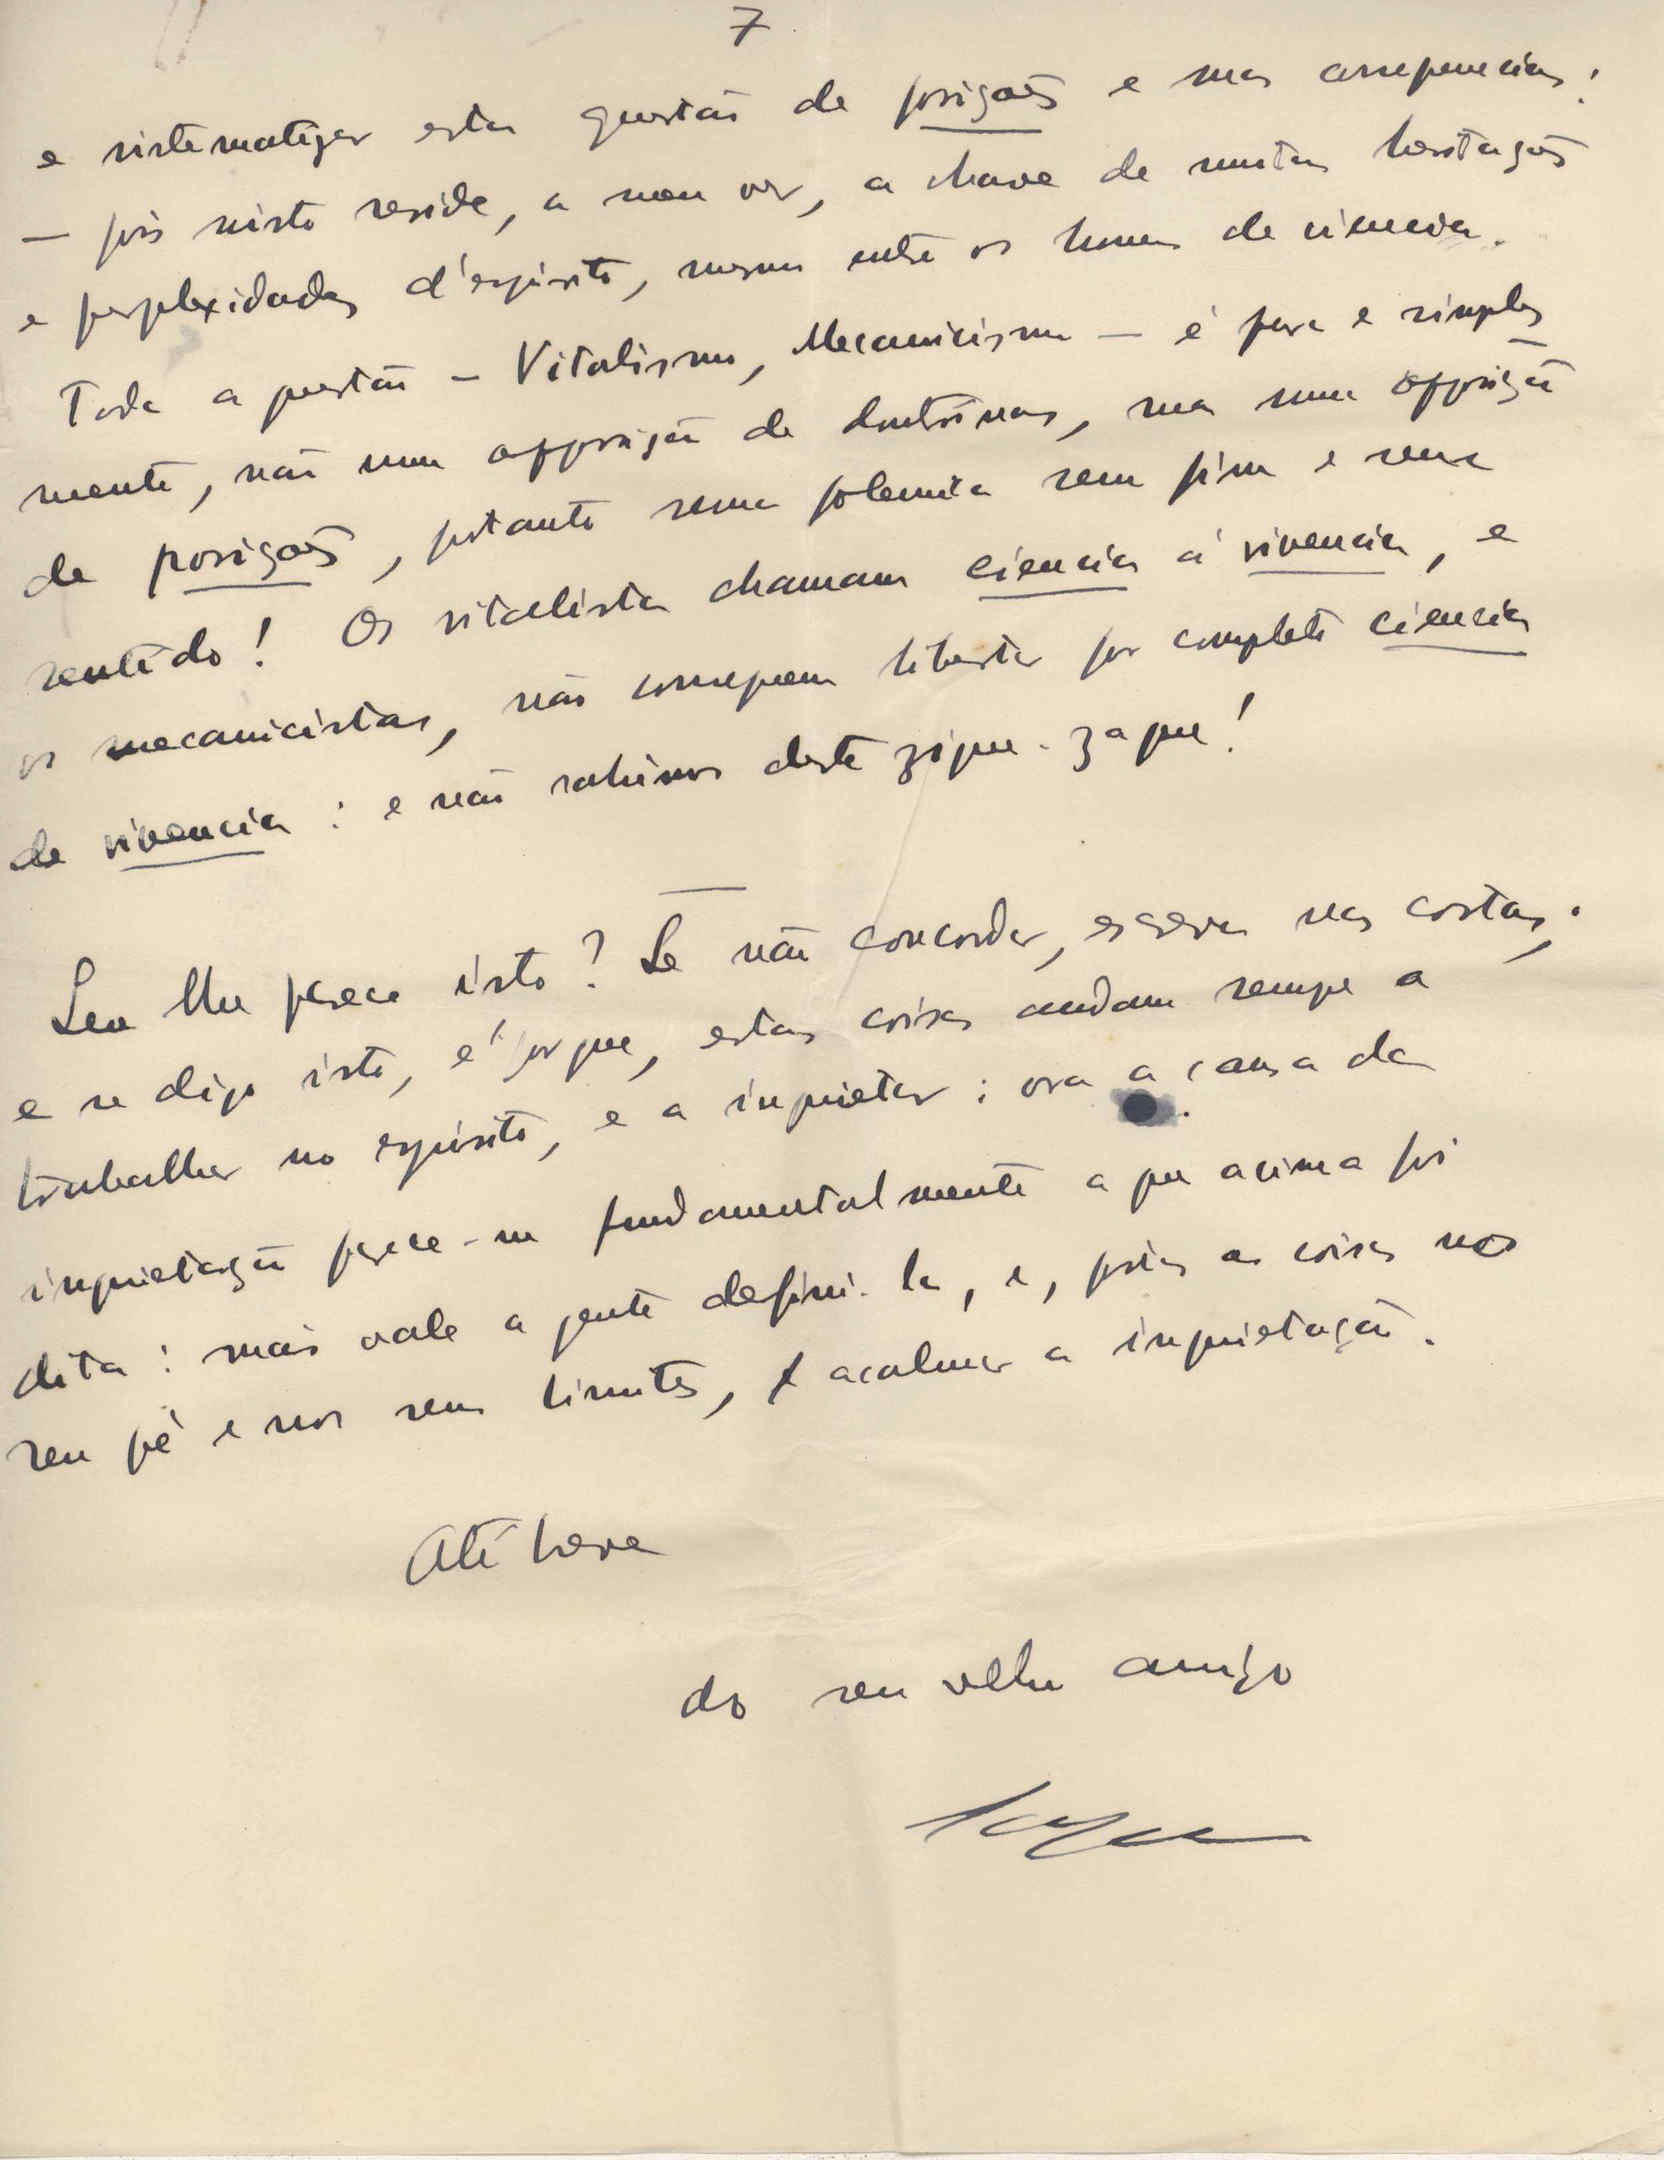 7
e sistematizar esta questão de posições e suas consequencias:
— pois nisto reside, a meu ver, a chave de muitas hesitações
e perplexidades d'espirito, mesmo entre os homens de ciencia.
Toda a questão — Vitalismo, Mecanicismo — é pura e simples
mente, não uma opposição de doutrinas, mas uma opposição
de posições, portanto uma polemica sem fim e sem
sentido! Os vitalistas chamam ciencia á vivencia, e
os mecanicistas, não conseguem libertar por completo ciencia
de vivencia: e não sahimos deste zigue-zague!
Que lhe parece isto? Se não concordar, escreva nas costas;
e se digo isto, é porque, estas coisas andam sempre a
trabalhar no espirito, e a inquietar: ora a causa da
inquietação parece-me fundamentalmente a que acima foi
dita: mais vale a gente defini-la, e, postas as coisas no
seu pé e nos seus limites, acalmar a inquietação.
Até breve
do seu velho amigo